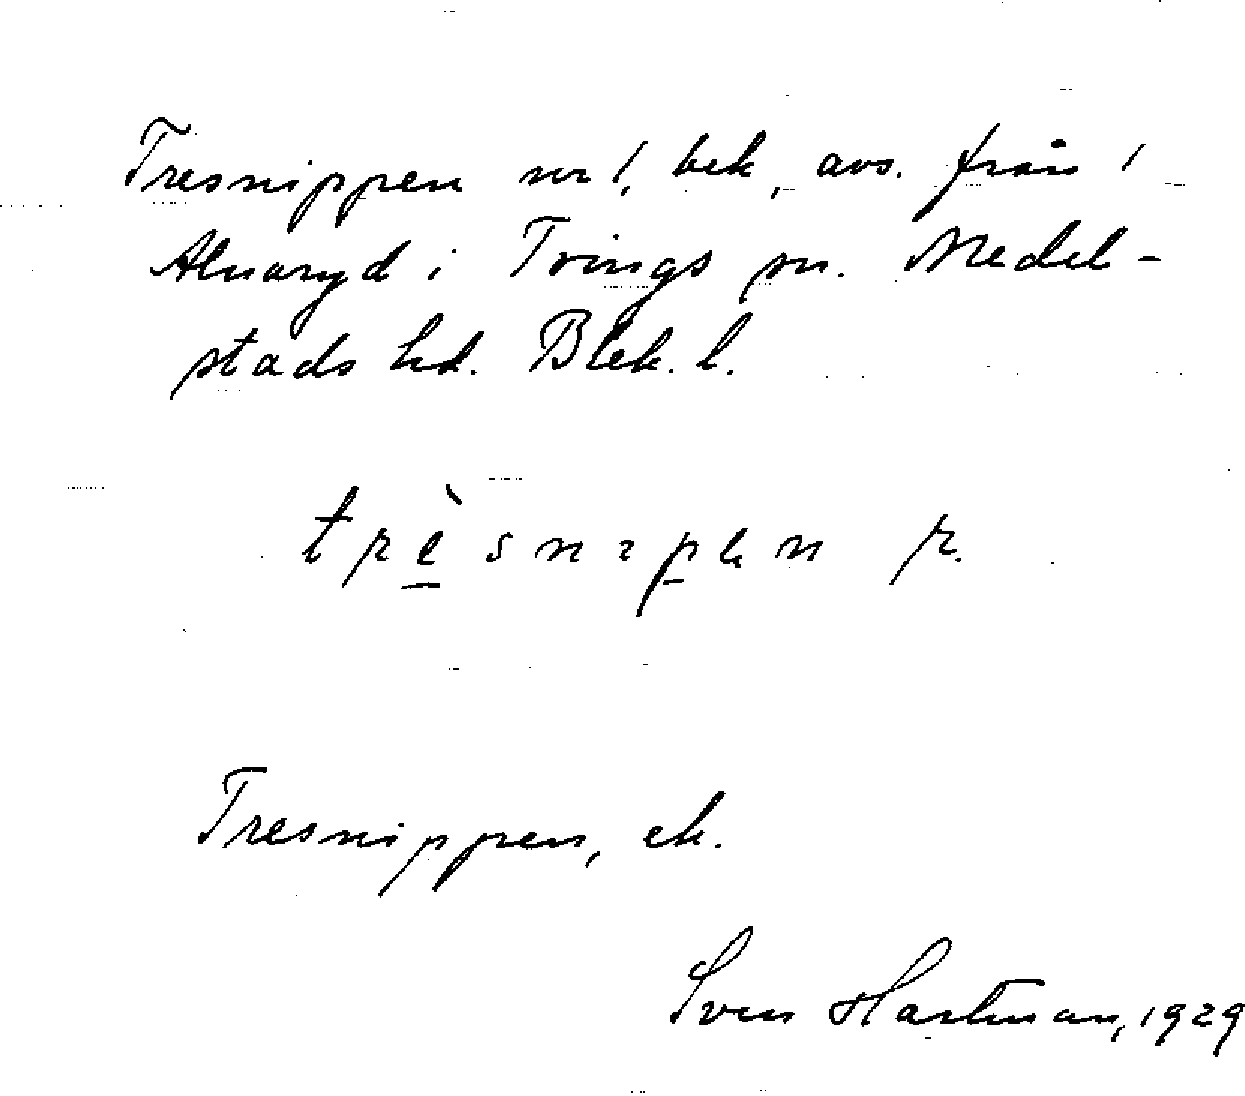 Tresnippen nr 1, bek, avs. från 1
Alnaryd i Tvings sn. Medel-
stads hd. Blek. l.
trèsnıpen r.
Tresnippen, ek.
Sven Hartman, 1929